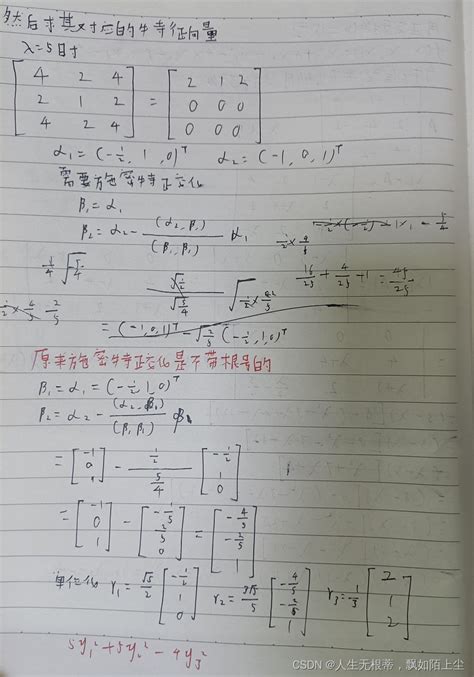 然后求其对应的特征向量
λ=5时
[4 2 4; 2 1 2; 4 2 4] = [2 1 2; 0 0 0; 0 0 0]
α₁=(-1/2, 1, 0)ᵀ α₂=(-1, 0, 1)ᵀ
需要施密特正交化
β₁=α₁
β₂=α₂-(α₂,β₁)/(β₁,β₁) α₁
16/25+4/25+1=45/25
=(-1,0,1)ᵀ-√(2/5)(-1/2,1,0)ᵀ
原来施密特正交化是不带根号的
β₁=α₁=(-1/2,1,0)ᵀ
β₂=α₂-(α₂,β₁)/(β₁,β₁) β₁
=[-1; 0; 1]-(1/2)/(5/4)[-1/2; 1; 0]
=[-1; 0; 1]-[-1/5; 2/5; 0]=[-4/5; -2/5; 1]
单位化 γ₁=√5/2[-1/2; 1; 0] γ₂=3√5/5[-4/5; -2/5; 1] γ₃=-1/3[2; 1; 2]
5y₁²+5y₂²-4y₃²
CSDN @人生无根蒂，飘如陌上尘